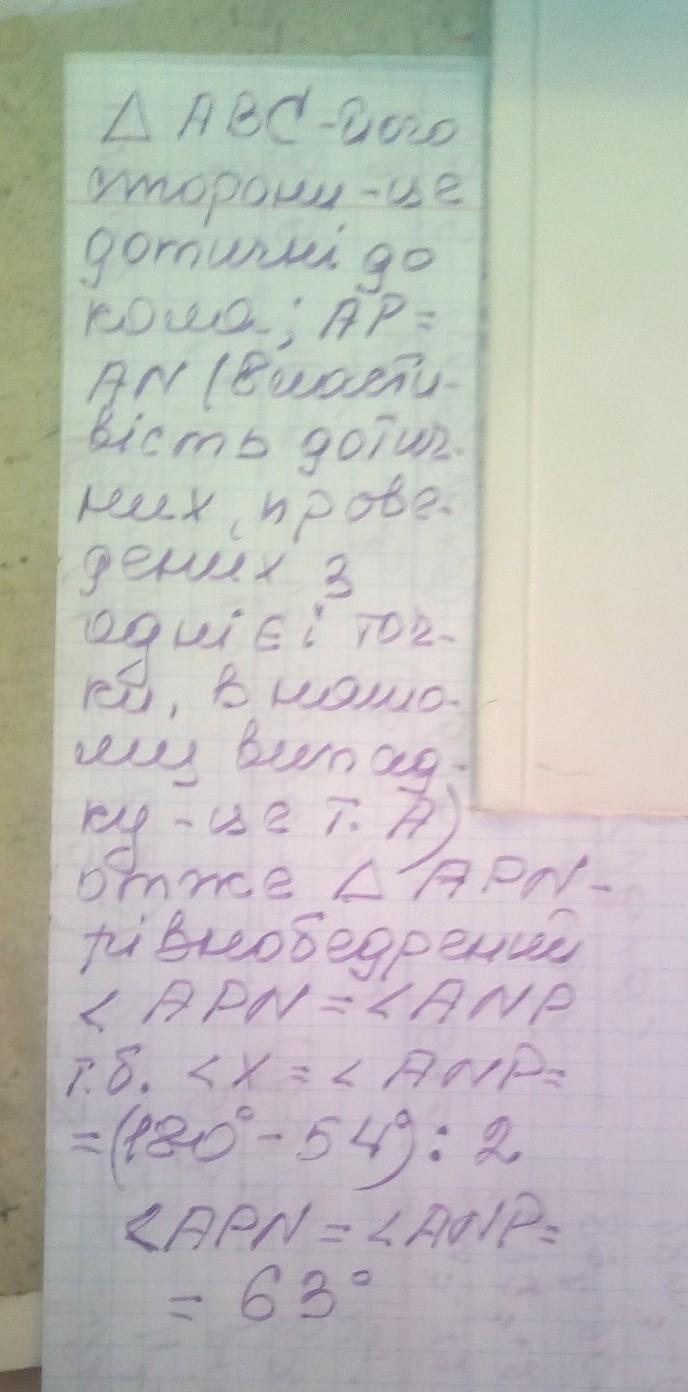 △ ABC - його
сторони - це
дотичні до
кола; AP =
AN (Власти-
вість дотич-
них, прове-
дених з
однієї точ-
ки, в нашо-
му випад-
ку - це т. A)
отже △ APN -
рівнобедрений
< APN = < ANP
т.б. < X = < ANP =
= (180° - 54°) : 2
< APN = < ANP =
= 63°